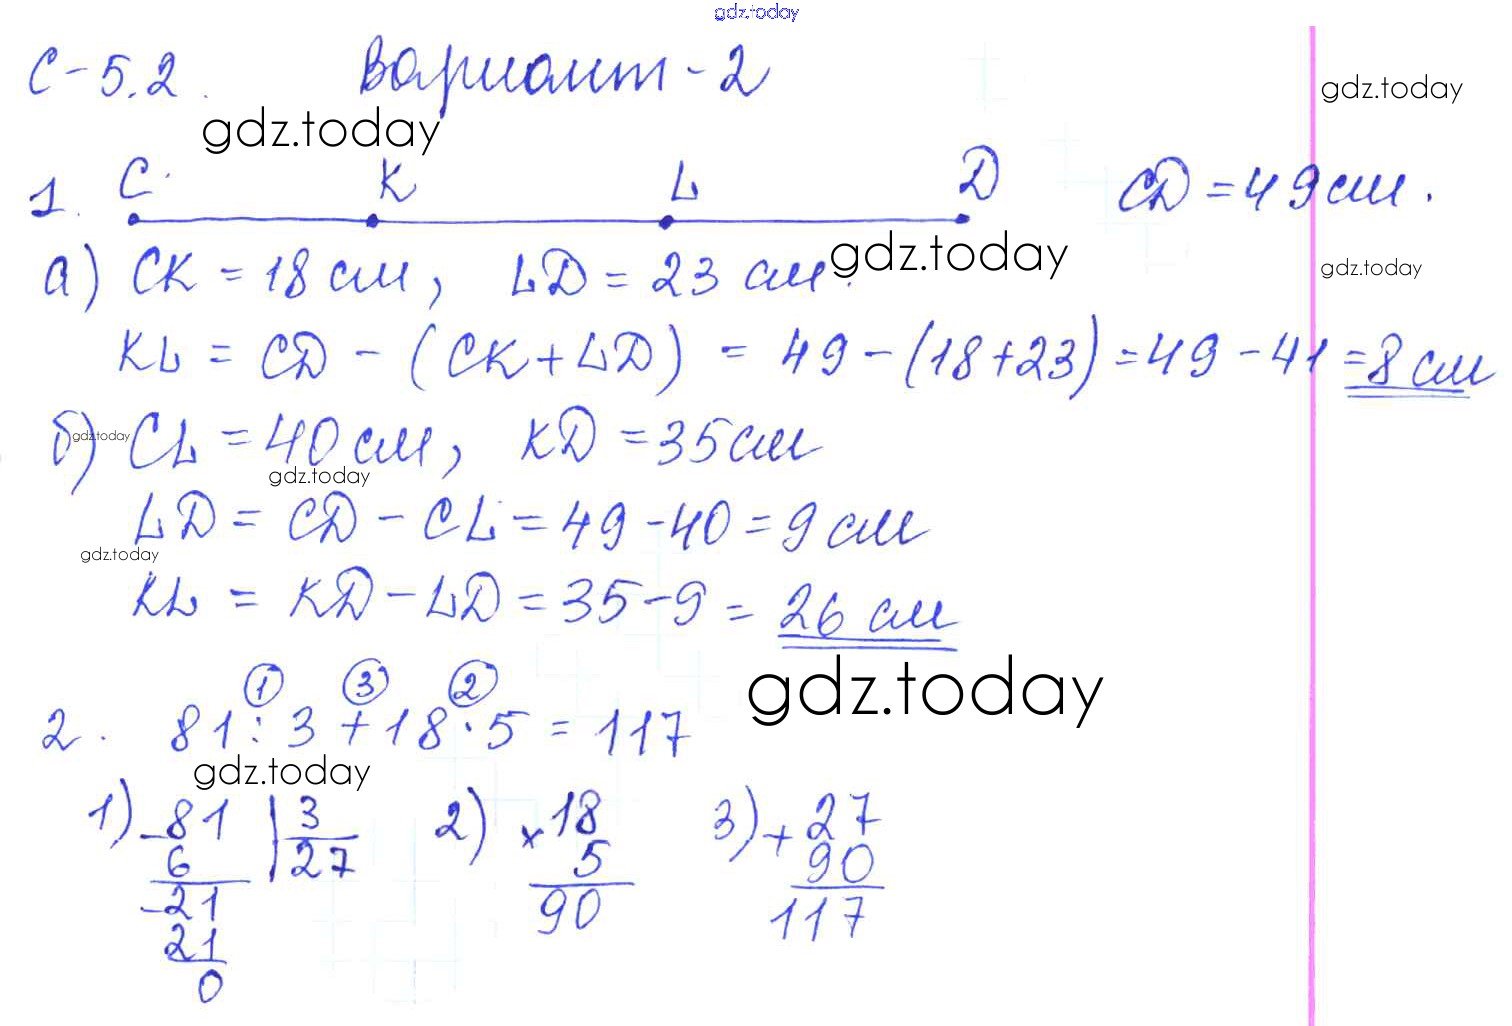 gdz.today
С-5.2. Вариант-2
gdz.today
gdz.today
1. C K L D CD = 49 см.
а) CK = 18 см, LD = 23 см.
gdz.today
gdz.today
KL = CD - (CK + LD) = 49 - (18 + 23) = 49 - 41 = 8 см
б) CL = 40 см, KD = 35 см
gdz.today
gdz.today
LD = CD - CL = 49 - 40 = 9 см
gdz.today
KL = KD - LD = 35 - 9 = 26 см
gdz.today
1 3 2
2. 81 : 3 + 18 · 5 = 117
gdz.today
1) - 81 | 3 2) × 18 3) + 27
6 27 5 90
- 21 90 117
21
0